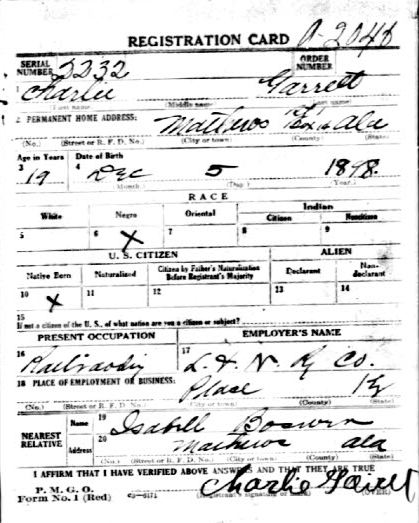 REGISTRATION CARD A-2048
SERIAL NUMBER 3232 ORDER NUMBER
1 Charlie Garrett
First name Middle name Last name
2 PERMANENT HOME ADDRESS: Mathews Ala
(No.) (Street or R. F. D. No.) (City or town) (County) (State)
Age in Years Date of Birth
3 19 4 Dec 5 1898
(Month.) (Day.) (Year.)
RACE
White Negro Oriental Indian
Citizen Noncitizen
5 6 X 7 8 9
U. S. CITIZEN ALIEN
Native Born Naturalized Citizen by Father's Naturalization Before Registrant's Majority Declarant Non-declarant
10 X 11 12 13 14
15
If not a citizen of the U. S., of what nation are you a citizen or subject?
PRESENT OCCUPATION EMPLOYER'S NAME
16 Railroading 17 L & N Ry Co.
18 PLACE OF EMPLOYMENT OR BUSINESS: Ky
(No.) (Street or R. F. D. No.) (City or town) (County) (State)
NEAREST RELATIVE
Name 19 Isabell
Address 20 Mathews Ala
(No.) (Street or R. F. D. No.) (City or town) (County) (State)
I AFFIRM THAT I HAVE VERIFIED ABOVE ANSWERS AND THAT THEY ARE TRUE
P. M. G. O.
Form No. 1 (Red) 03-6171 Charlie Garrett
(Registrant's signature or mark) (OVER)